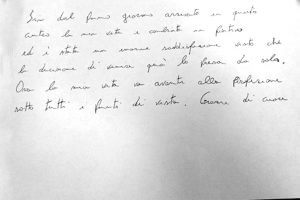 Sin dal primo giorno arrivato in questo
centro la mia vita è cambiata in positivo
ed è stata un enorme soddisfazione visto che
la decisione di venire qua l'ho presa da solo.
Ora la mia vita va avanti alla perfezione
sotto tutti i punti di vista. Grazie di cuore